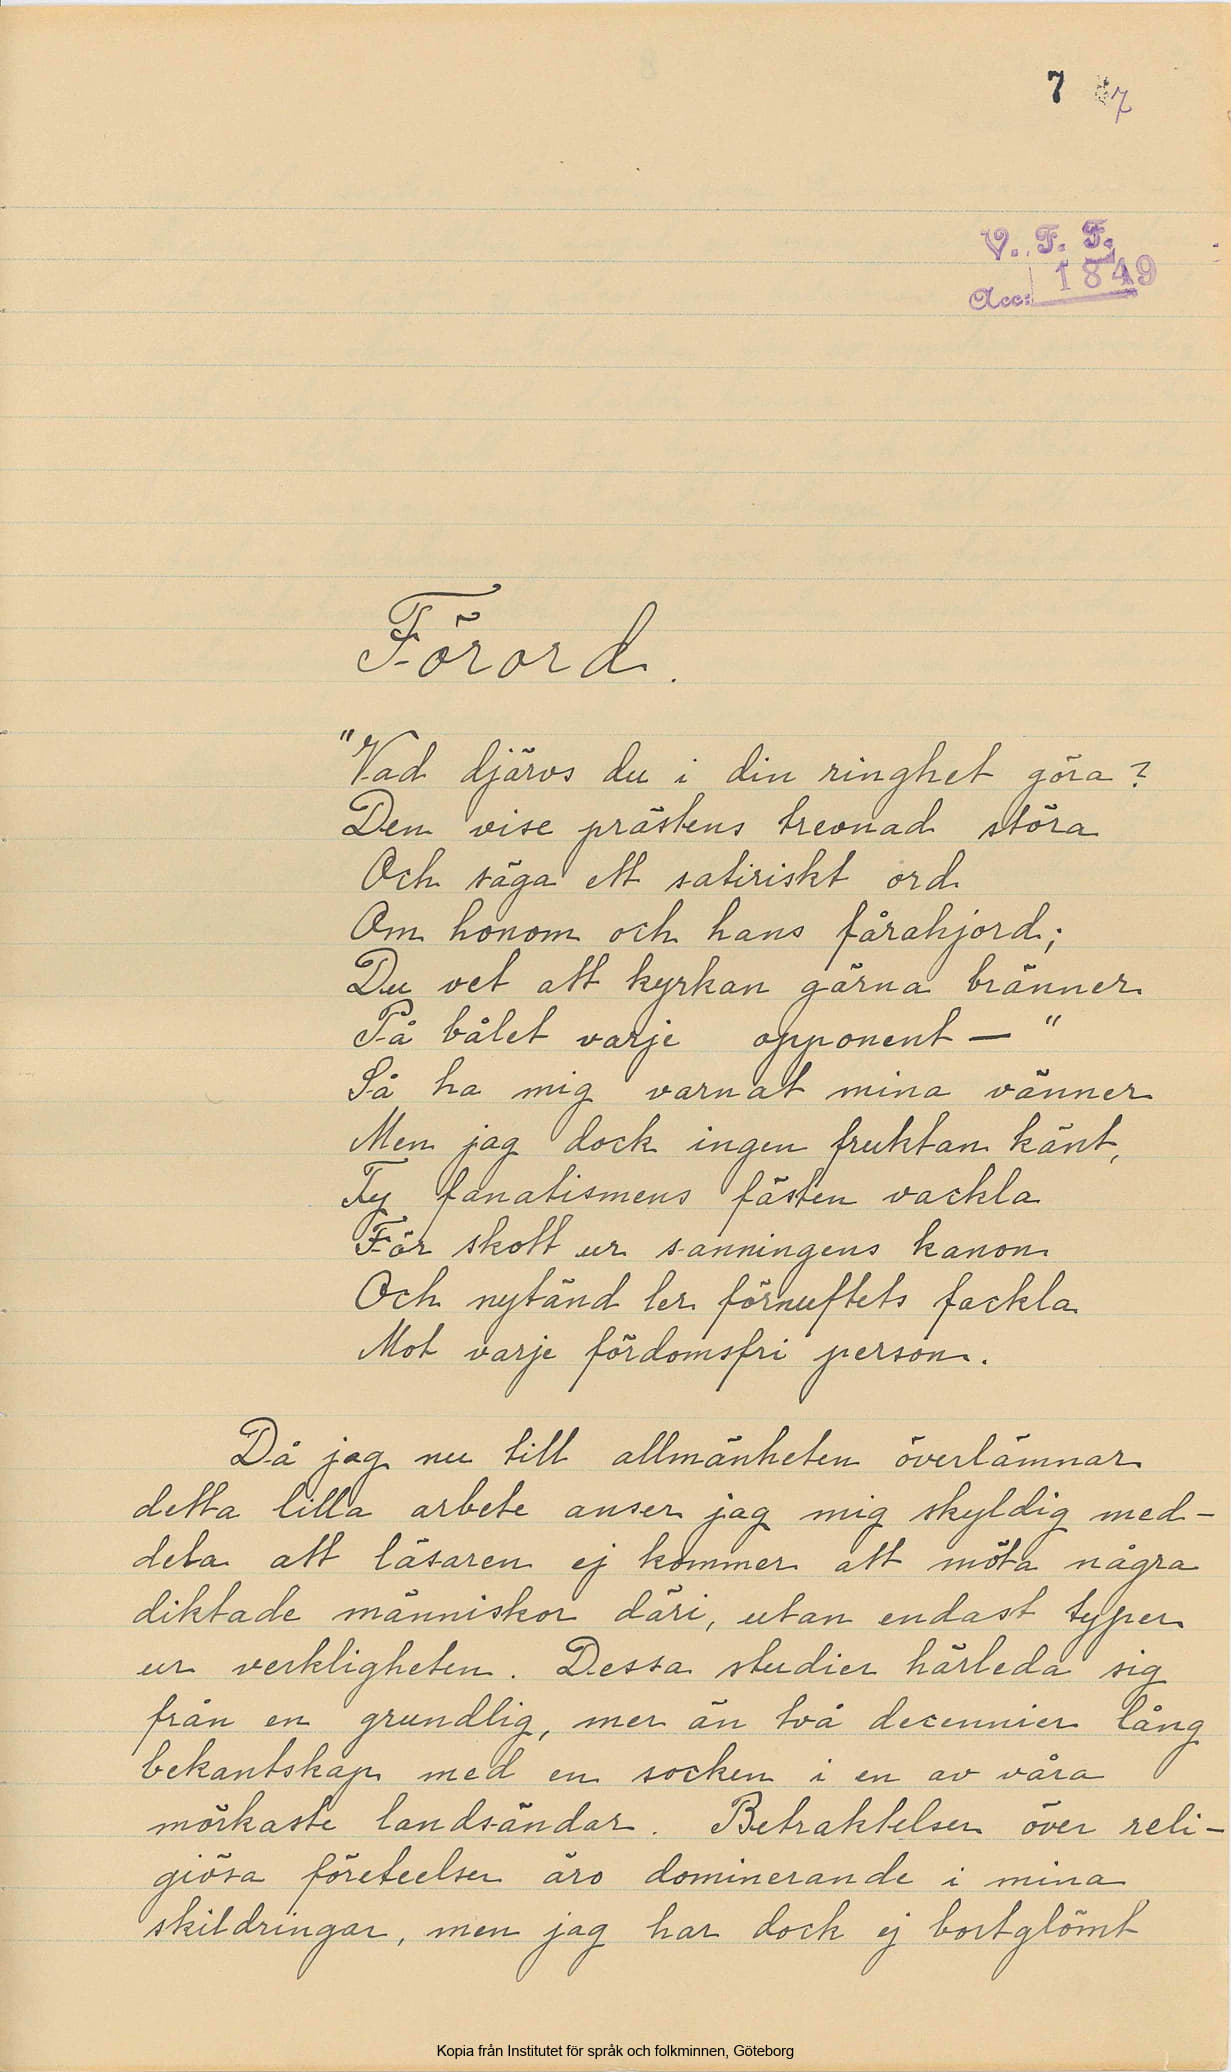 7 7
V. F. F.
Acc: 1849
Förord.
"Vad djärvs du i din ringhet göra?
Den vise prästens trevnad störa
Och säga ett satiriskt ord
Om honom och hans fårahjord;
Du vet att kyrkan gärna bränner
På bålet varje opponent — "
Så ha mig varnat mina vänner
Men jag dock ingen fruktan känt,
Ty fanatismens fästen vackla
För skott ur sanningens kanon
Och nytänd ler förnuftets fackla
Mot varje fördomsfri person.
Då jag nu till allmänheten överlämnar
detta lilla arbete anser jag mig skyldig med-
dela att läsaren ej kommer att möta några
diktade människor däri, utan endast typer
ur verkligheten. Dessa studier härleda sig
från en grundlig, mer än två decennier lång
bekantskap med en socken i en av våra
mörkaste landsändar. Betraktelser över reli-
giösa företeelser äro dominerande i mina
skildringar, men jag har dock ej bortglömt
Kopia från Institutet för språk och folkminnen, Göteborg